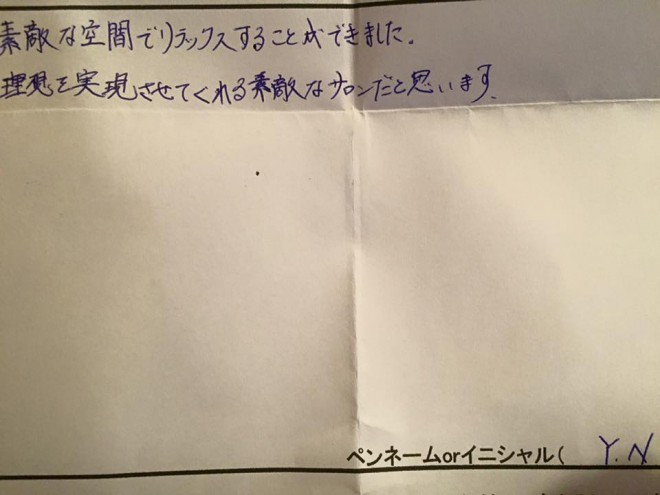 素敵な空間でリラックスすることができました。
理想を実現させてくれる素敵なサロンだと思います。
ペンネームorイニシャル( Y.N